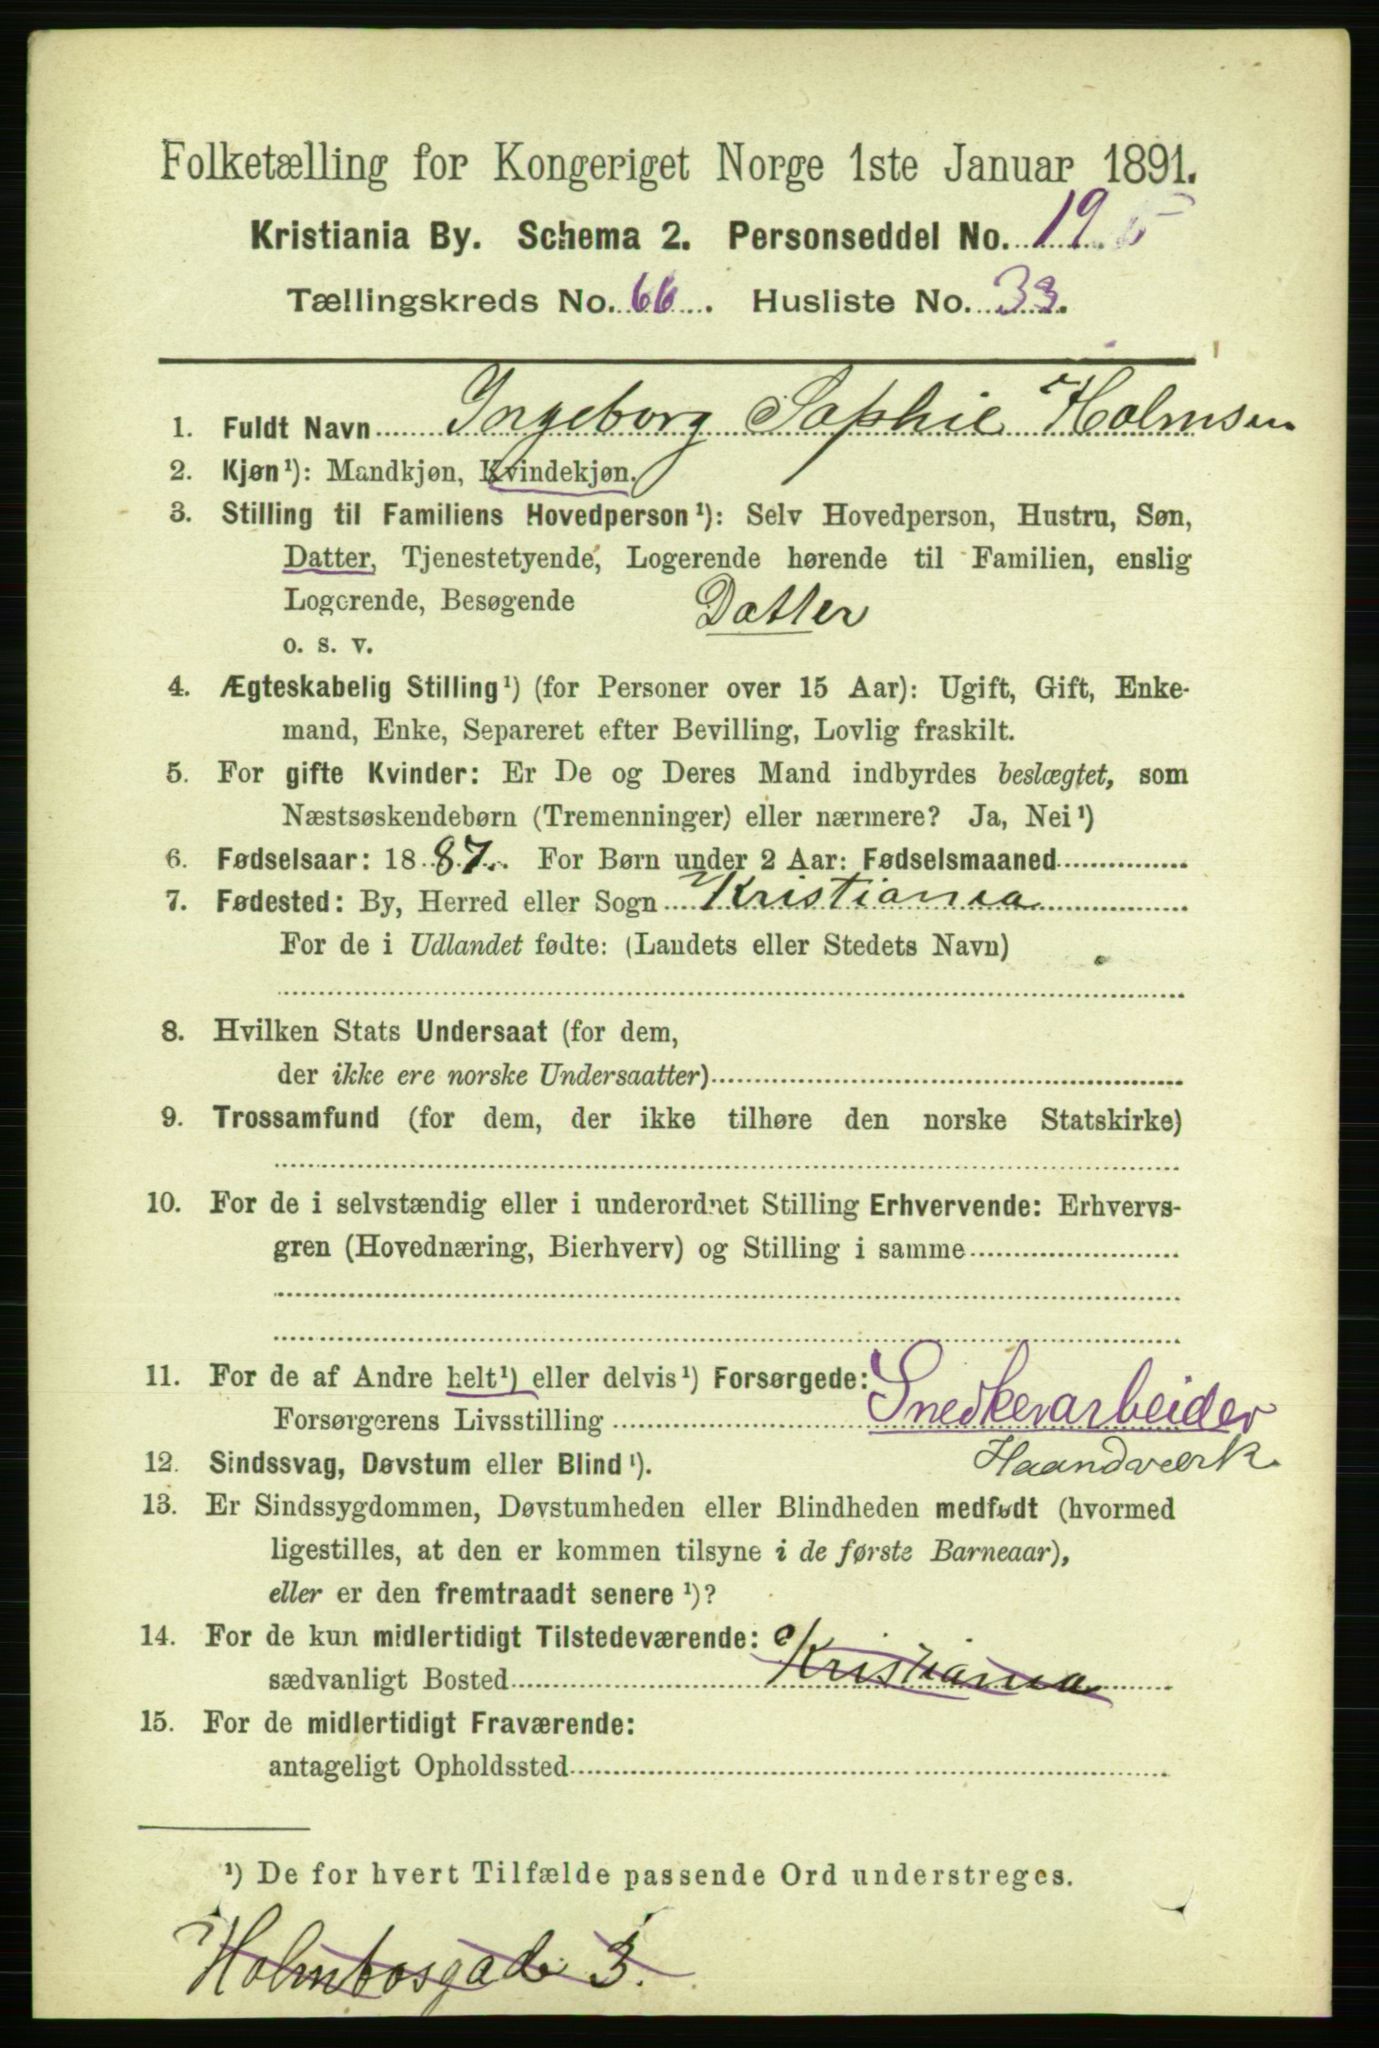 Folketælling for Kongeriget Norge 1ste Januar 1891.
Kristiania By. Schema 2. Personseddel No. 19
Tællingskreds No. 66. Husliste No. 33.
1. Fuldt Navn Ingeborg Sophie Holmsen
2. Kjøn¹): Mandkjøn, Kvindekjøn.
3. Stilling til Familiens Hovedperson¹): Selv Hovedperson, Hustru, Søn,
Datter, Tjenestetyende, Logerende hørende til Familien, enslig
Logerende, Besøgende Datter
o. s. v.
4. Ægteskabelig Stilling¹) (for Personer over 15 Aar): Ugift, Gift, Enke-
mand, Enke, Separeret efter Bevilling, Lovlig fraskilt.
5. For gifte Kvinder: Er De og Deres Mand indbyrdes beslægtet, som
Næstsøskendebørn (Tremenninger) eller nærmere? Ja, Nei¹)
6. Fødselsaar: 1887. For Børn under 2 Aar: Fødselsmaaned
7. Fødested: By, Herred eller Sogn Kristiania
For de i Udlandet fødte: (Landets eller Stedets Navn)
8. Hvilken Stats Undersaat (for dem,
der ikke ere norske Undersaatter)
9. Trossamfund (for dem, der ikke tilhøre den norske Statskirke)
10. For de i selvstændig eller i underordnet Stilling Erhvervende: Erhvervs-
gren (Hovednæring, Bierhverv) og Stilling i samme
11. For de af Andre helt¹) eller delvis¹) Forsørgede:
Forsørgerens Livsstilling Snedkerarbeider
Haandværk
12. Sindssvag, Døvstum eller Blind¹).
13. Er Sindssygdommen, Døvstumheden eller Blindheden medfødt (hvormed
ligestilles, at den er kommen tilsyne i de første Barneaar),
eller er den fremtraadt senere¹)?
14. For de kun midlertidigt Tilstedeværende:
sædvanligt Bosted Kristiania
15. For de midlertidigt Fraværende:
antageligt Opholdssted
¹) De for hvert Tilfælde passende Ord understreges.
Holmbosgade 3.